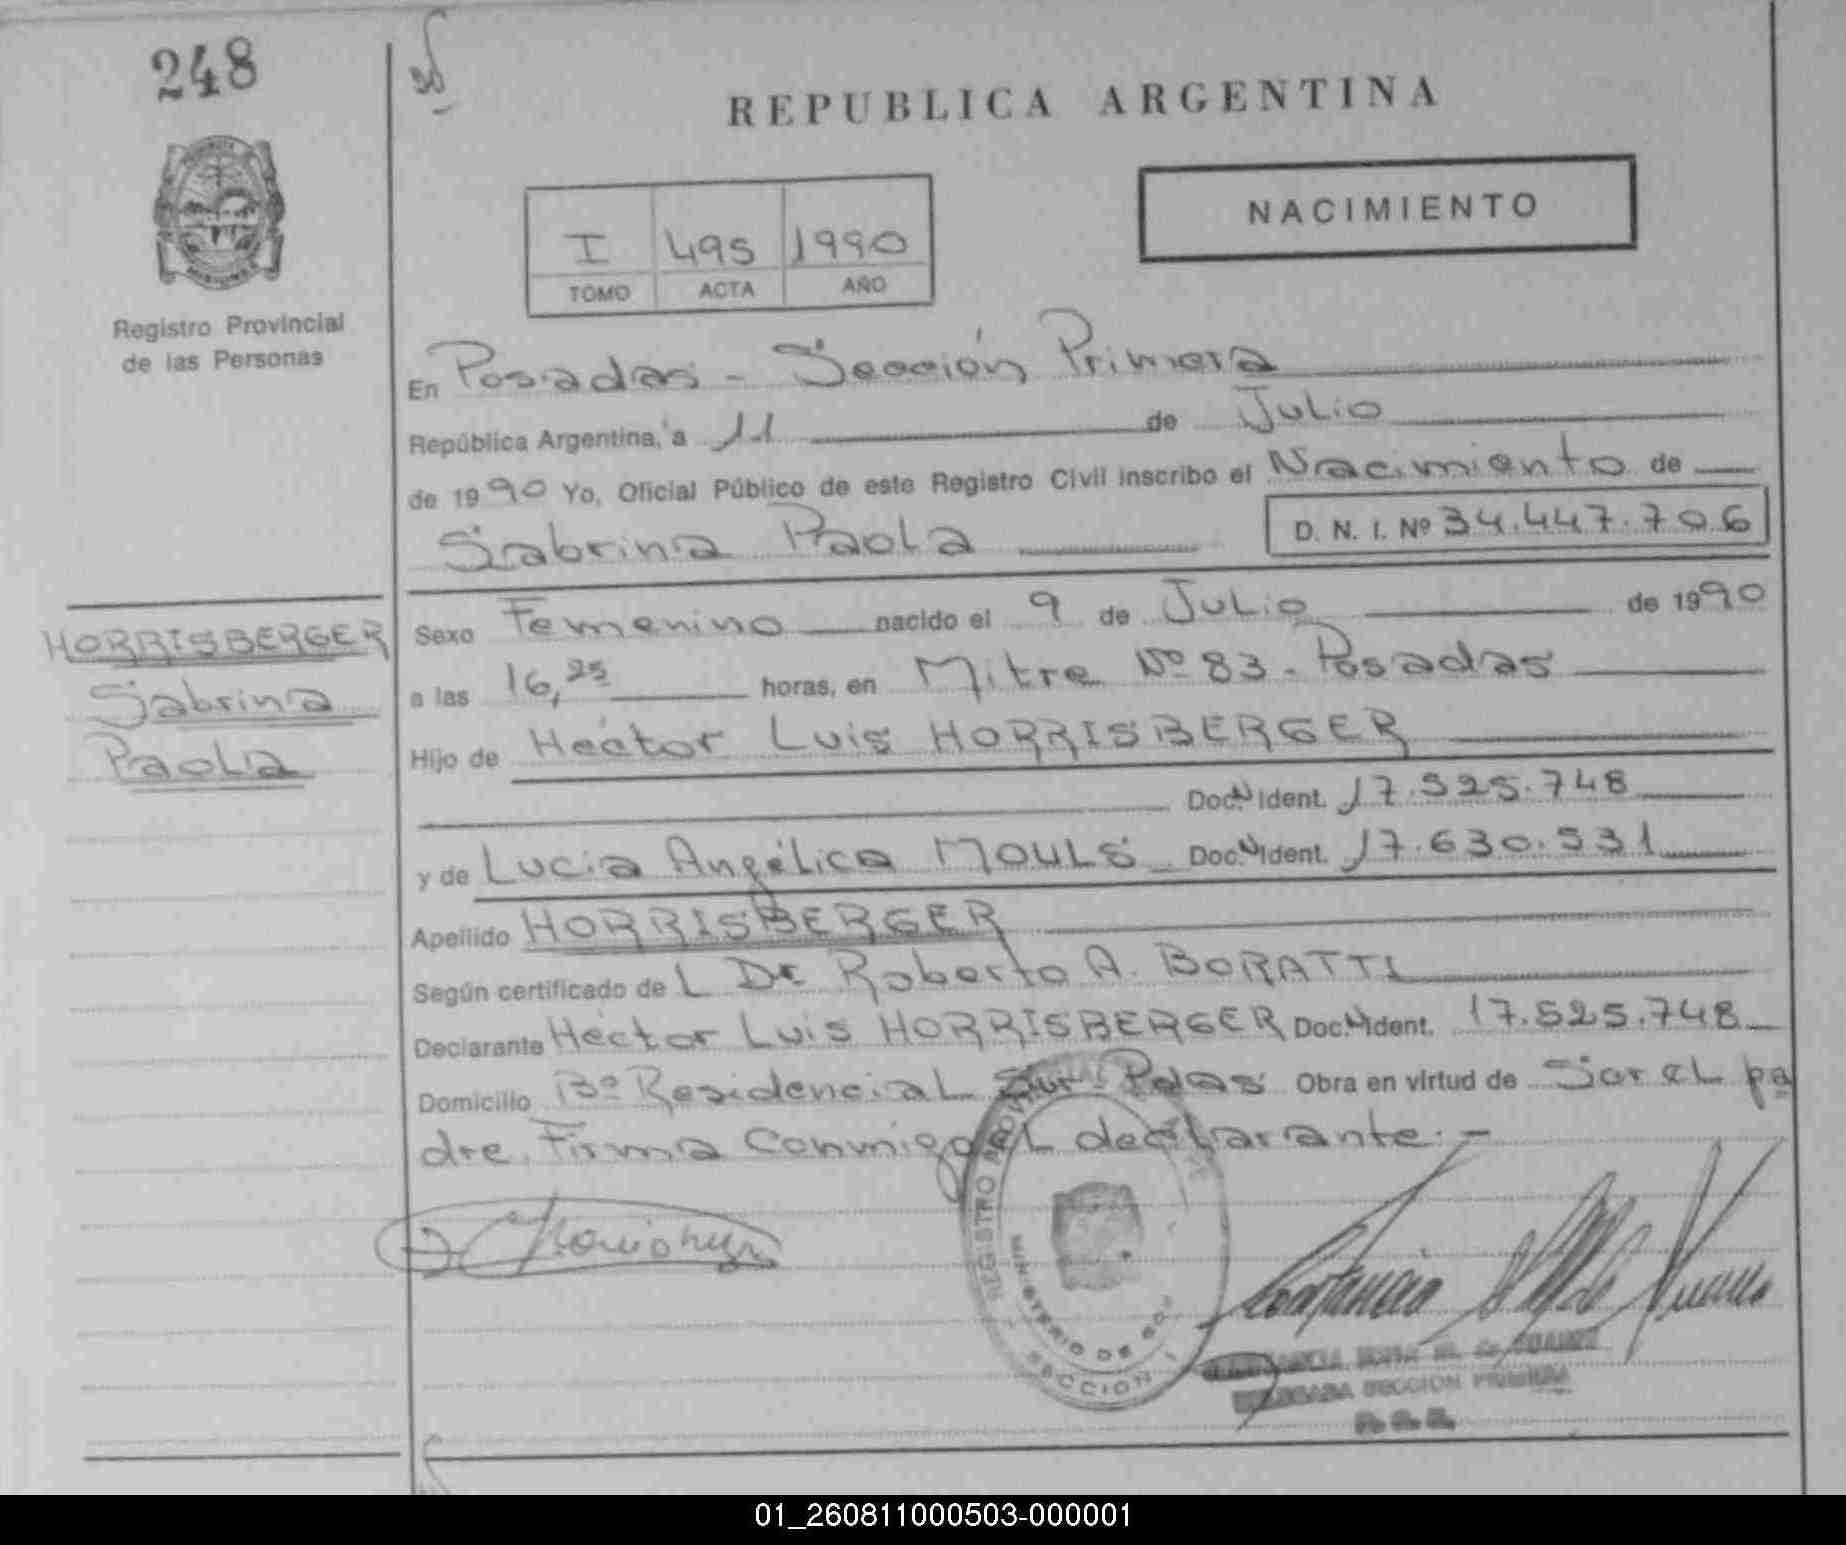 248
REPUBLICA ARGENTINA
NACIMIENTO
I 495 1990
TOMO ACTA AÑO
Registro Provincial
de las Personas
En Posadas - Sección Primera
República Argentina, a 11 de Julio
de 1990 Yo, Oficial Público de este Registro Civil inscribo el Nacimiento de
Sabrina Paola D. N. I. Nº 34.447.706
HORRISBERGER
Sabrina
Paola
Sexo Femenino nacido el 9 de Julio de 1990
a las 16,25 horas, en Mitre Nº 83 - Posadas
Hijo de Héctor Luis HORRISBERGER
Doc. Ident. 17.525.748
y de Lucia Angélica MOULS Doc. Ident. 17.630.531
Apellido HORRISBERGER
Según certificado de L Dr Roberto A. BORATTI
Declarante Héctor Luis HORRISBERGER Doc. Ident. 17.525.748
Domicilio Bº Residencial Sur - Pdas Obra en virtud de Ser el pa
dre. Firma Conmigo el declarante. -
REGISTRO PROVINCIAL
MINISTERIO DE GOB
SECCION 1
SECCION PRIMERA
01_260811000503-000001